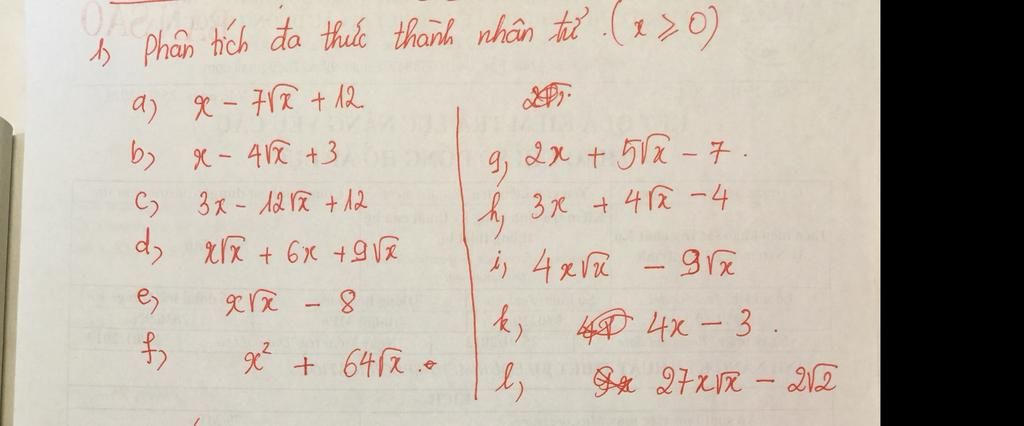 1) Phân tích đa thức thành nhân tử. (x ≥ 0)
a) x - 7√x + 12
b) x - 4√x + 3
c) 3x - 12√x + 12
d) x√x + 6x + 9√x
e) x√x - 8
f) x² + 64√x.
g) 2x + 5√x - 7.
h) 3x + 4√x - 4
i) 4x√x - 9√x
k) 4x - 3.
l) 27x√x - 2√2